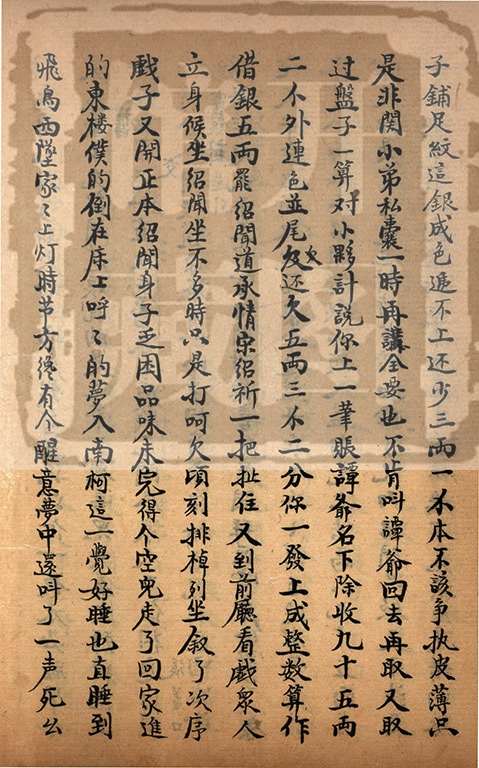 子鋪足紋這銀成色遞不上还少三両一不本不該争执皮薄只
是非関小弟私囊一時再講全要也不肯叫譚爺回去再取又取
过盤子一算对小夥計説你上一筆賬譚爺名下除收九十五両
二不外連色並尾欠还欠五両三不二分你一發上成整数算作
借銀五両罷绍聞道承情宗绍祈一把扯住又到前廳看戲衆人
立身候坐绍聞坐不多時只是打呵欠頃刻排棹列坐叙了次序
戲子又開正本绍聞身子乏困品味未完得个空兒走了回家進
的東楼僕的倒在床上呼〻的夢入南柯這一覺好睡也直睡到
飛鳥西墜家〻上灯時节方終有个醒意夢中還叫了一声死幺